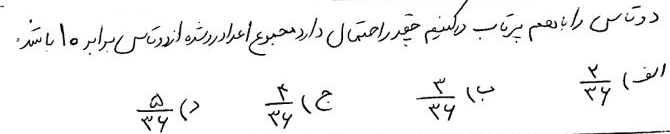 دو تاس را با هم پرتاب می‌کنیم چقدر احتمال دارد مجموع اعداد رو شده از دو تاس برابر ۱۰ باشد.
الف) ۲/۳۶ ب) ۳/۳۶ ج) ۴/۳۶ د) ۵/۳۶